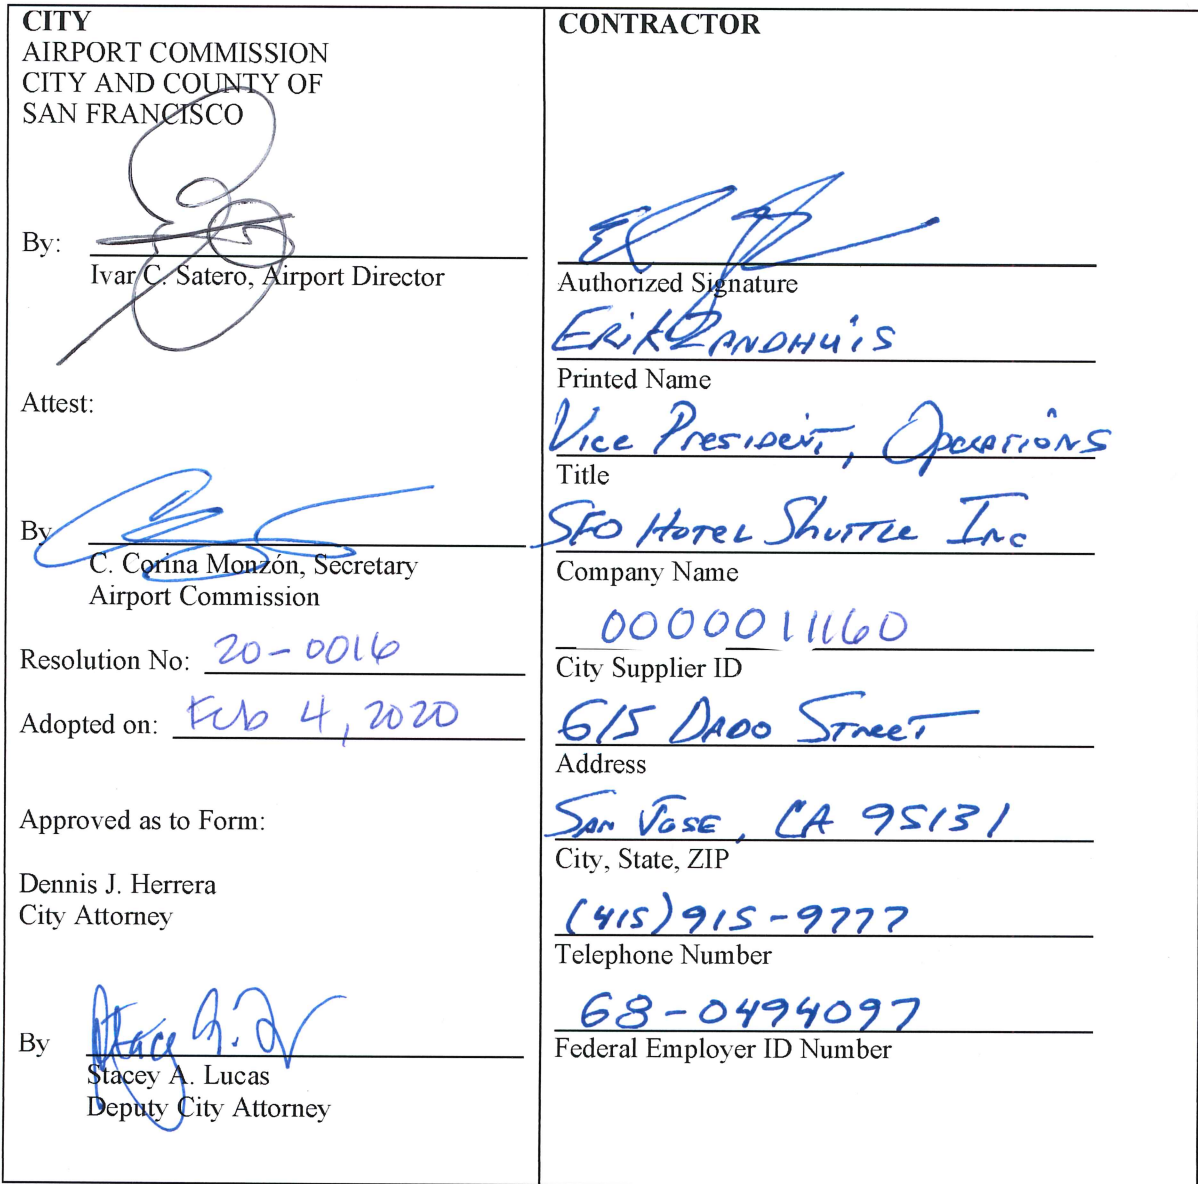 CITY
AIRPORT COMMISSION
CITY AND COUNTY OF
SAN FRANCISCO
By:
Ivar C. Satero, Airport Director
Attest:
By
C. Corina Monzón, Secretary
Airport Commission
Resolution No: 20-0016
Adopted on: Feb 4, 2020
Approved as to Form:
Dennis J. Herrera
City Attorney
By
Stacey A. Lucas
Deputy City Attorney
CONTRACTOR
Authorized Signature
ERiK ZANDHUiS
Printed Name
Vice President, Operations
Title
SFO Hotel Shuttle Inc
Company Name
0000011160
City Supplier ID
615 DADO Street
Address
San Jose, CA 95131
City, State, ZIP
(415)915-9777
Telephone Number
68-0494097
Federal Employer ID Number